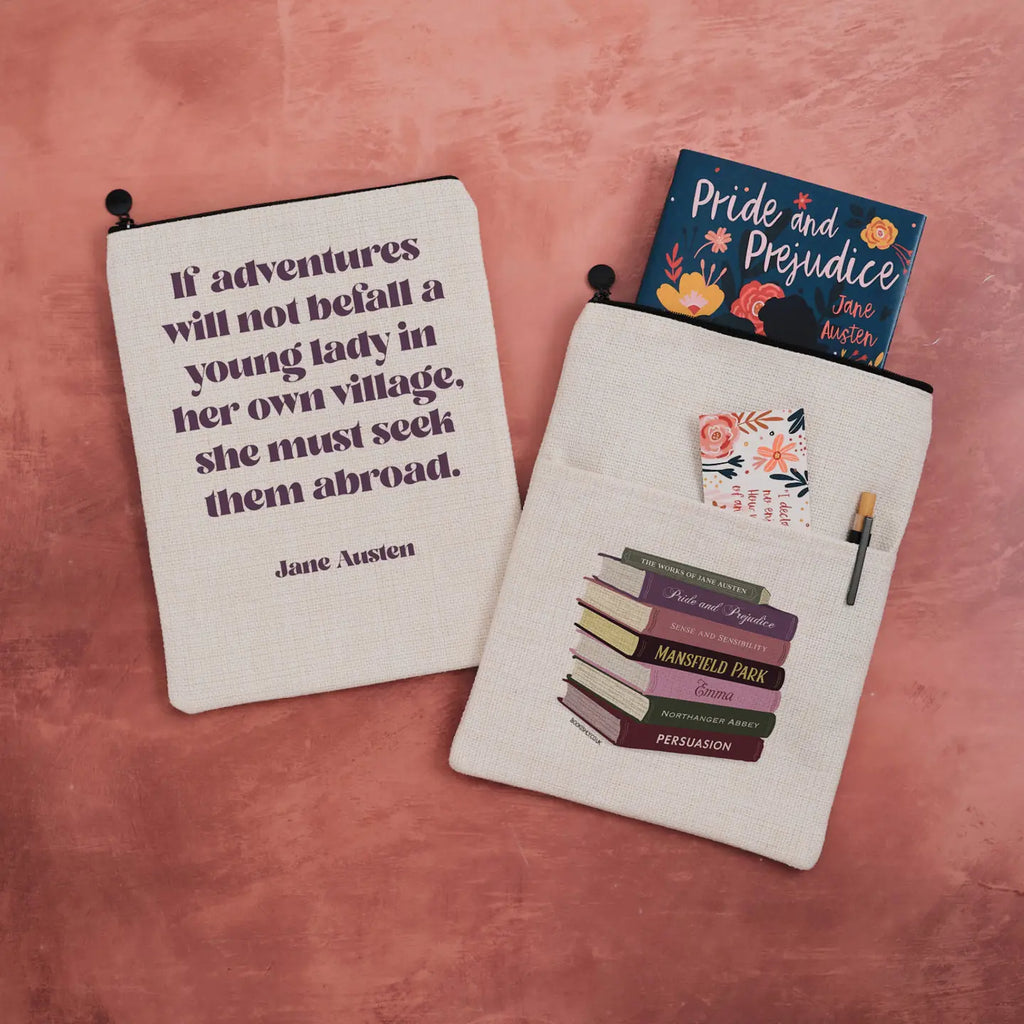 If adventures
will not befall a
young lady in
her own village,
she must seek
them abroad.
Jane Austen
Pride and
Prejudice
Jane
Austen
"I decl
no enj
How
of an
THE WORKS OF JANE AUSTEN
Pride and Prejudice
SENSE AND SENSIBILITY
MANSFIELD PARK
Emma
NORTHANGER ABBEY
PERSUASION